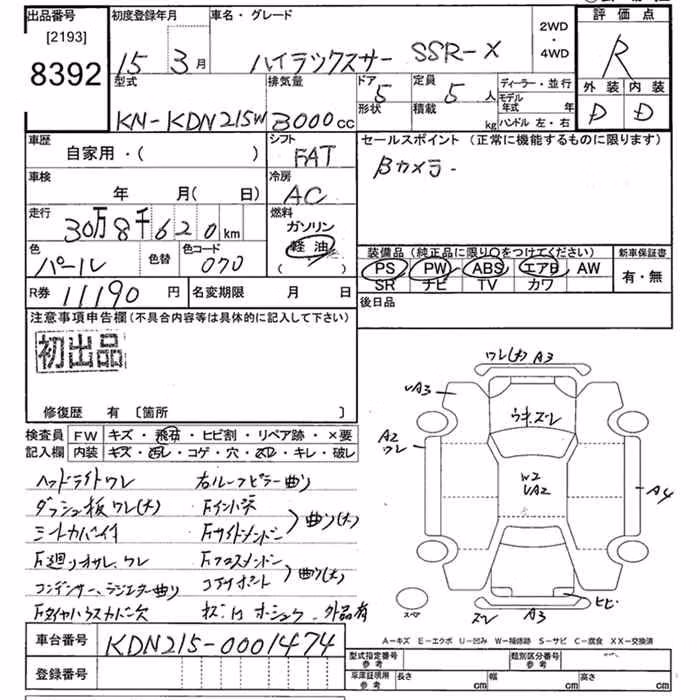 出品番号
[2193]
8392
初度登録年月
15 3月
車名・グレード
ハイラックスサー SSR-X
2WD
・
4WD
評価点
R
外装 内装
D D
型式
KN-KDN215W
排気量
3000cc
ドア
5
形状
定員
5人
積載
kg
ディーラー・並行
モデル
年式 年
ハンドル 左・右
車歴
自家用・( )
シフト
FAT
セールスポイント (正常に機能するものに限ります)
Bカメラ
車検
年 月( 日)
冷房
AC
走行
30万8千620km
燃料
ガソリン
軽油
( )
色
パール
色替
色コード
070
装備品(純正品に限り○をつけてください)
PS PW ABS エアB AW
SR ナビ TV カワ
新車保証書
有・無
R券 11190円
名変期限 月 日
後日品
注意事項申告欄(不具合内容等は具体的に記入して下さい)
初出品
修復歴 有 〔箇所 〕
検査員
記入欄
FW キズ・飛石・ヒビ割・リペア跡・×要
内装 キズ・汚レ・コゲ・穴・スレ・キレ・破レ
ヘッドライトワレ 右ルーフピラー曲り
ダッシュ板ワレ(大)
曲り(大)
曲り(大)
コンデンサー、ラジエター曲り
外品有
ワレ(大) A3
VA3
A2
ワレ
W2
VA2
A4
ヒビ
スレ A3
スペア
A-キズ E-エクボ U-凹み W-補修跡 S-サビ C-腐食 XX-交換済
車台番号 KDN215-0001474
登録番号
型式指定番号
参考
類別区分番号
参考
車庫証明用
参考
長さ cm
幅 cm
高さ cm